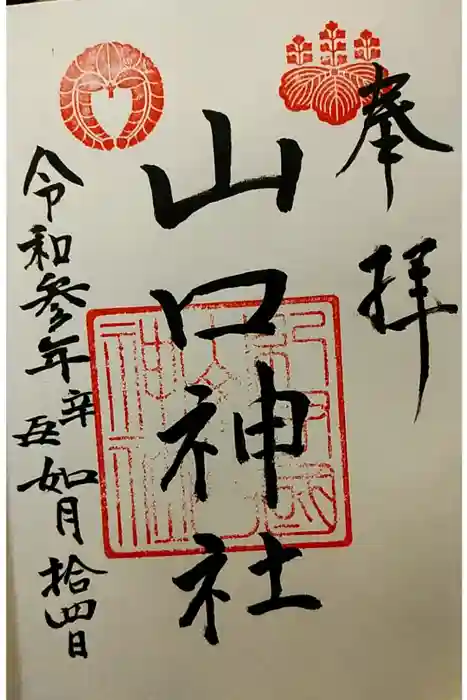 奉拝
山口神社
令和参年辛丑如月拾四日